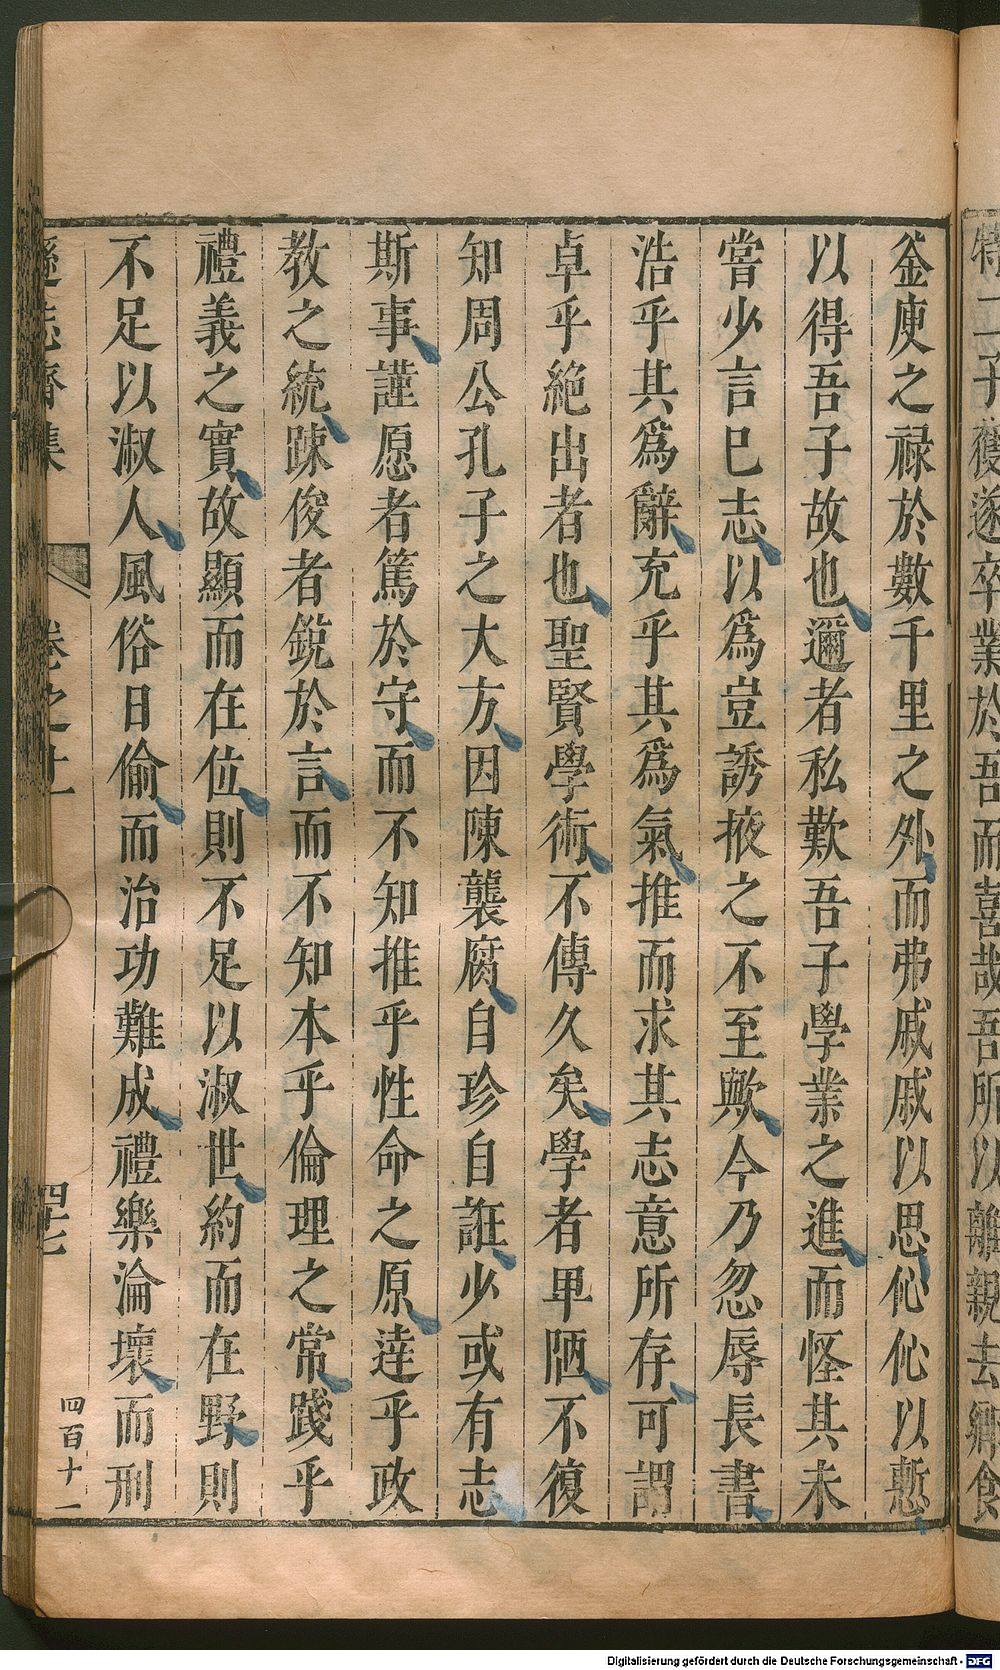 特二子獲遂卒業於吾而喜哉吾所以離親去鄉食
釡庾之祿於數千里之外而弗戚戚以思伈伈以慙
以得吾子故也邇者私歎吾子學業之進而怪其未
嘗少言已志以爲豈誘掖之不至歟今乃忽辱長書
浩乎其爲辭充乎其爲氣推而求其志意所存可謂
卓乎絕出者也聖賢學術不傳久矣學者卑陋不復
知周公孔子之大方因陳襲腐自珍自誑少或有志
斯事謹愿者篤於守而不知推乎性命之原達乎政
教之統踈俊者銳於言而不知本乎倫理之常踐乎
禮義之實故顯而在位則不足以淑世約而在野則
不足以淑人風俗日偷而治功難成禮樂淪壞而刑
遜志齋集 卷之十一 四十七 四百十一
Digitalisierung gefördert durch die Deutsche Forschungsgemeinschaft - DFG